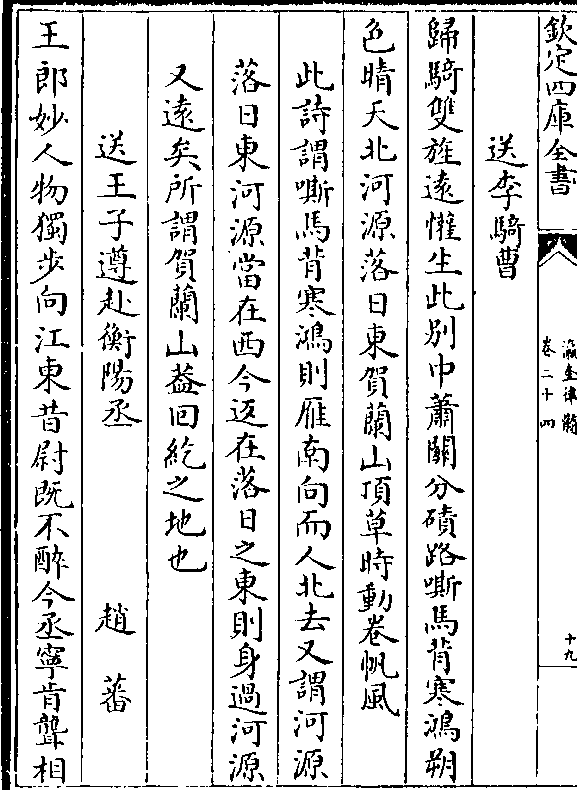 欽定四庫全書
瀛奎律髓
卷二十四
十九
送李騎曹
歸騎雙旌遠懽生此别中蕭關分磧路嘶馬背寒鴻朔
色晴天北河源落日東賀蘭山頂草時動卷帆風
此詩謂嘶馬背寒鴻則雁南向而人北去又謂河源
落日東河源當在西今返在落日之東則身過河源
又遠矣所謂賀蘭山葢回紇之地也
送王子遵赴衡陽丞 趙蕃
王郎妙人物獨步向江東昔尉既不醉今丞寧肯聾相